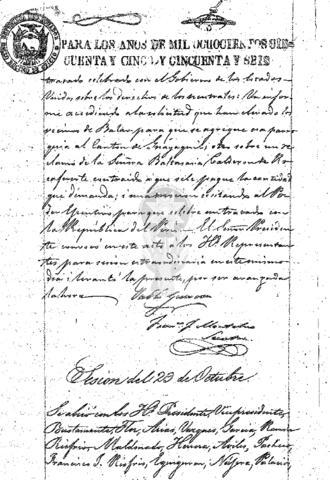 PARA LOS AÑOS DE MIL OCHOCIENTOS CIN
CUENTA Y CINCO Y CINCUENTA Y SEIS
tratado celebrado con el Gobierno de los Estados
Unidos sobre los derechos de los neutrales: Un infor
me accediendo a la solicitud que han elevado los
vecinos de Balzar para que se agregue esa parro
quia al Canton de Guayaquil; otro sobre un re
clamo de la Señora Baltasara Calderon de Ro
cafuerte contraido a que se le pague la cantidad
que demanda; i una mocion escitando al Po
der Ejecutivo para que celebre un tratado con
la República del Perú. El Señor Presiden
te convocó en este acto a los HH. Representan
tes para sesion extraordinaria en este mismo
dia; i levantó la presente, por ser avanzada
la hora.
Pablo Guevara
Secretario
Sesion del 23 de Octubre
Se abrió con los HH. Presidente, Vicepresidente,
Bustamante, Flor, Arias, Vazquez, Garcia,
Riofrio, Maldonado, Aviles, Pacheco,
Francisco J. Riofrio, Eguiguren, Palacios,